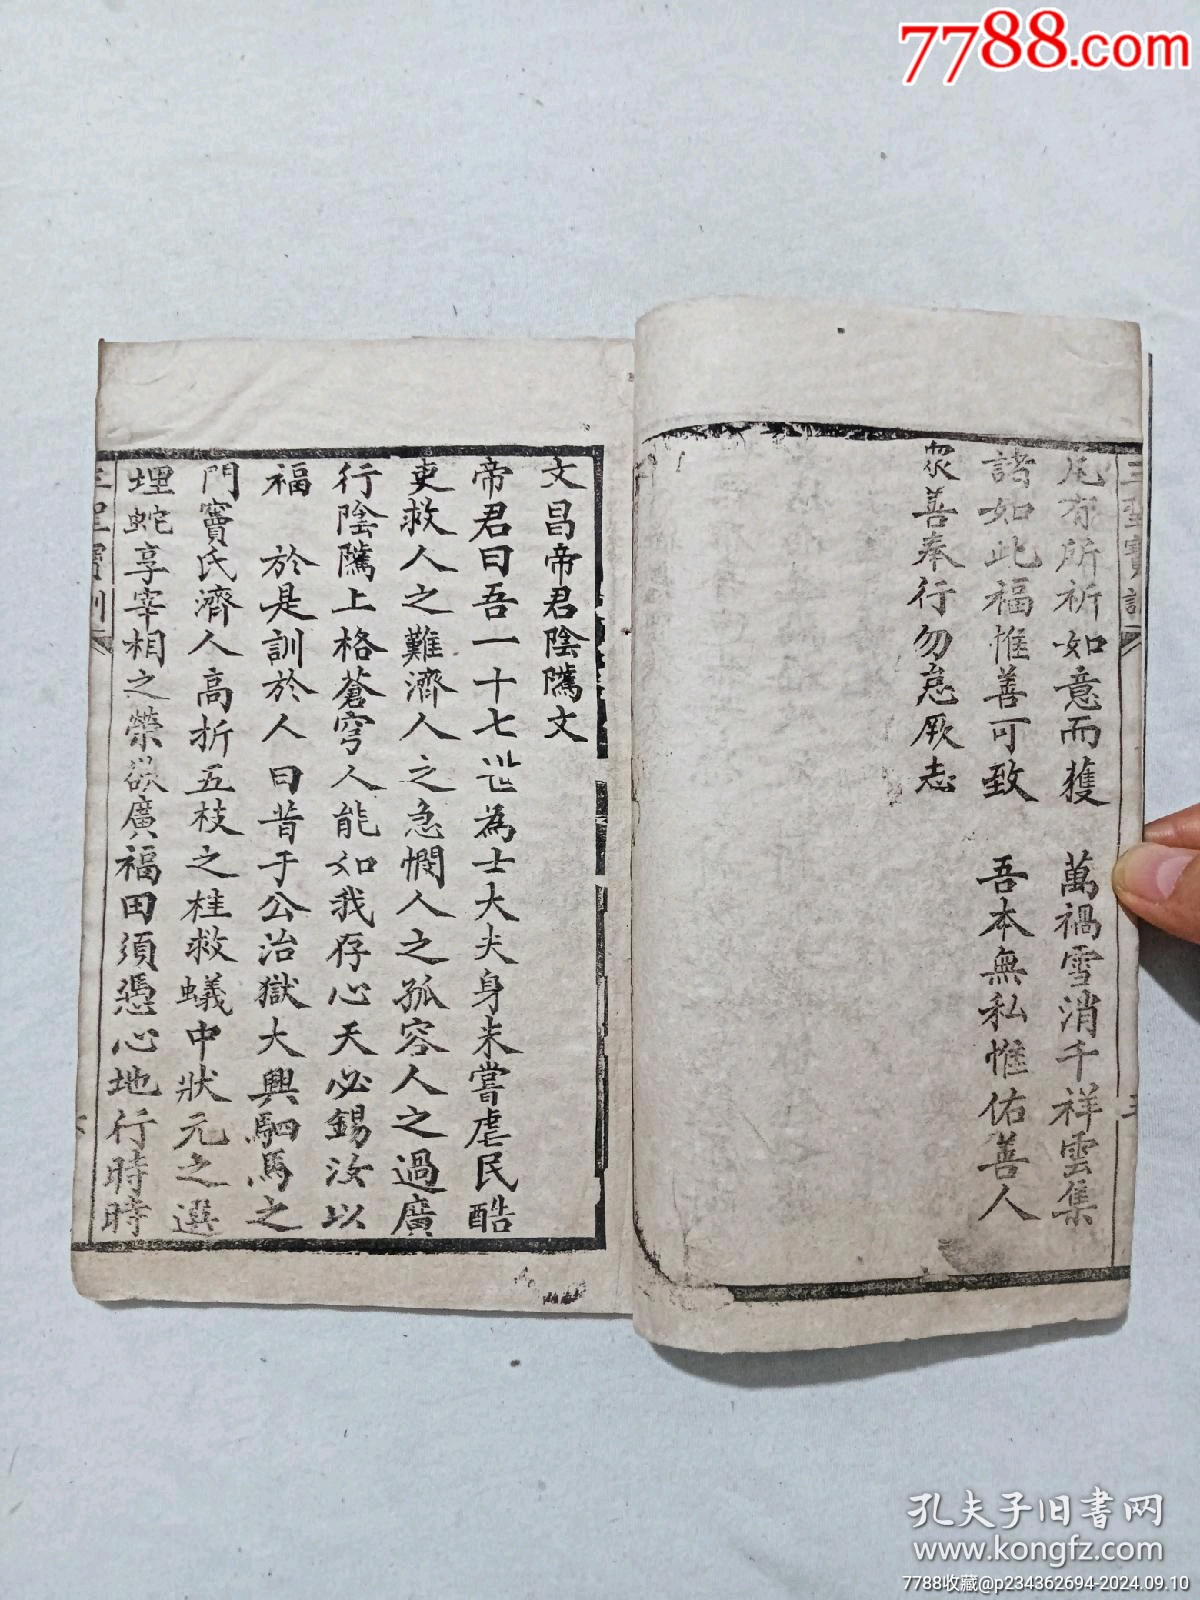 7788.com
凡有所祈如意而獲　萬禍雪消千祥雲集
諸如此福惟善可致　吾本無私惟佑善人
衆善奉行勿怠厥志
文昌帝君陰騭文
帝君曰吾一十七世為士大夫身未嘗虐民酷
吏救人之難濟人之急憫人之孤容人之過廣
行陰騭上格蒼穹人能如我存心天必錫汝以
福　於是訓於人曰昔于公治獄大興駟馬之
門竇氏濟人高折五枝之桂救蟻中狀元之選
埋蛇享宰相之榮欲廣福田須憑心地行時時
三聖寶訓
孔夫子旧书网
www.kongfz.com
7788收藏@p234362694-2024.09.10